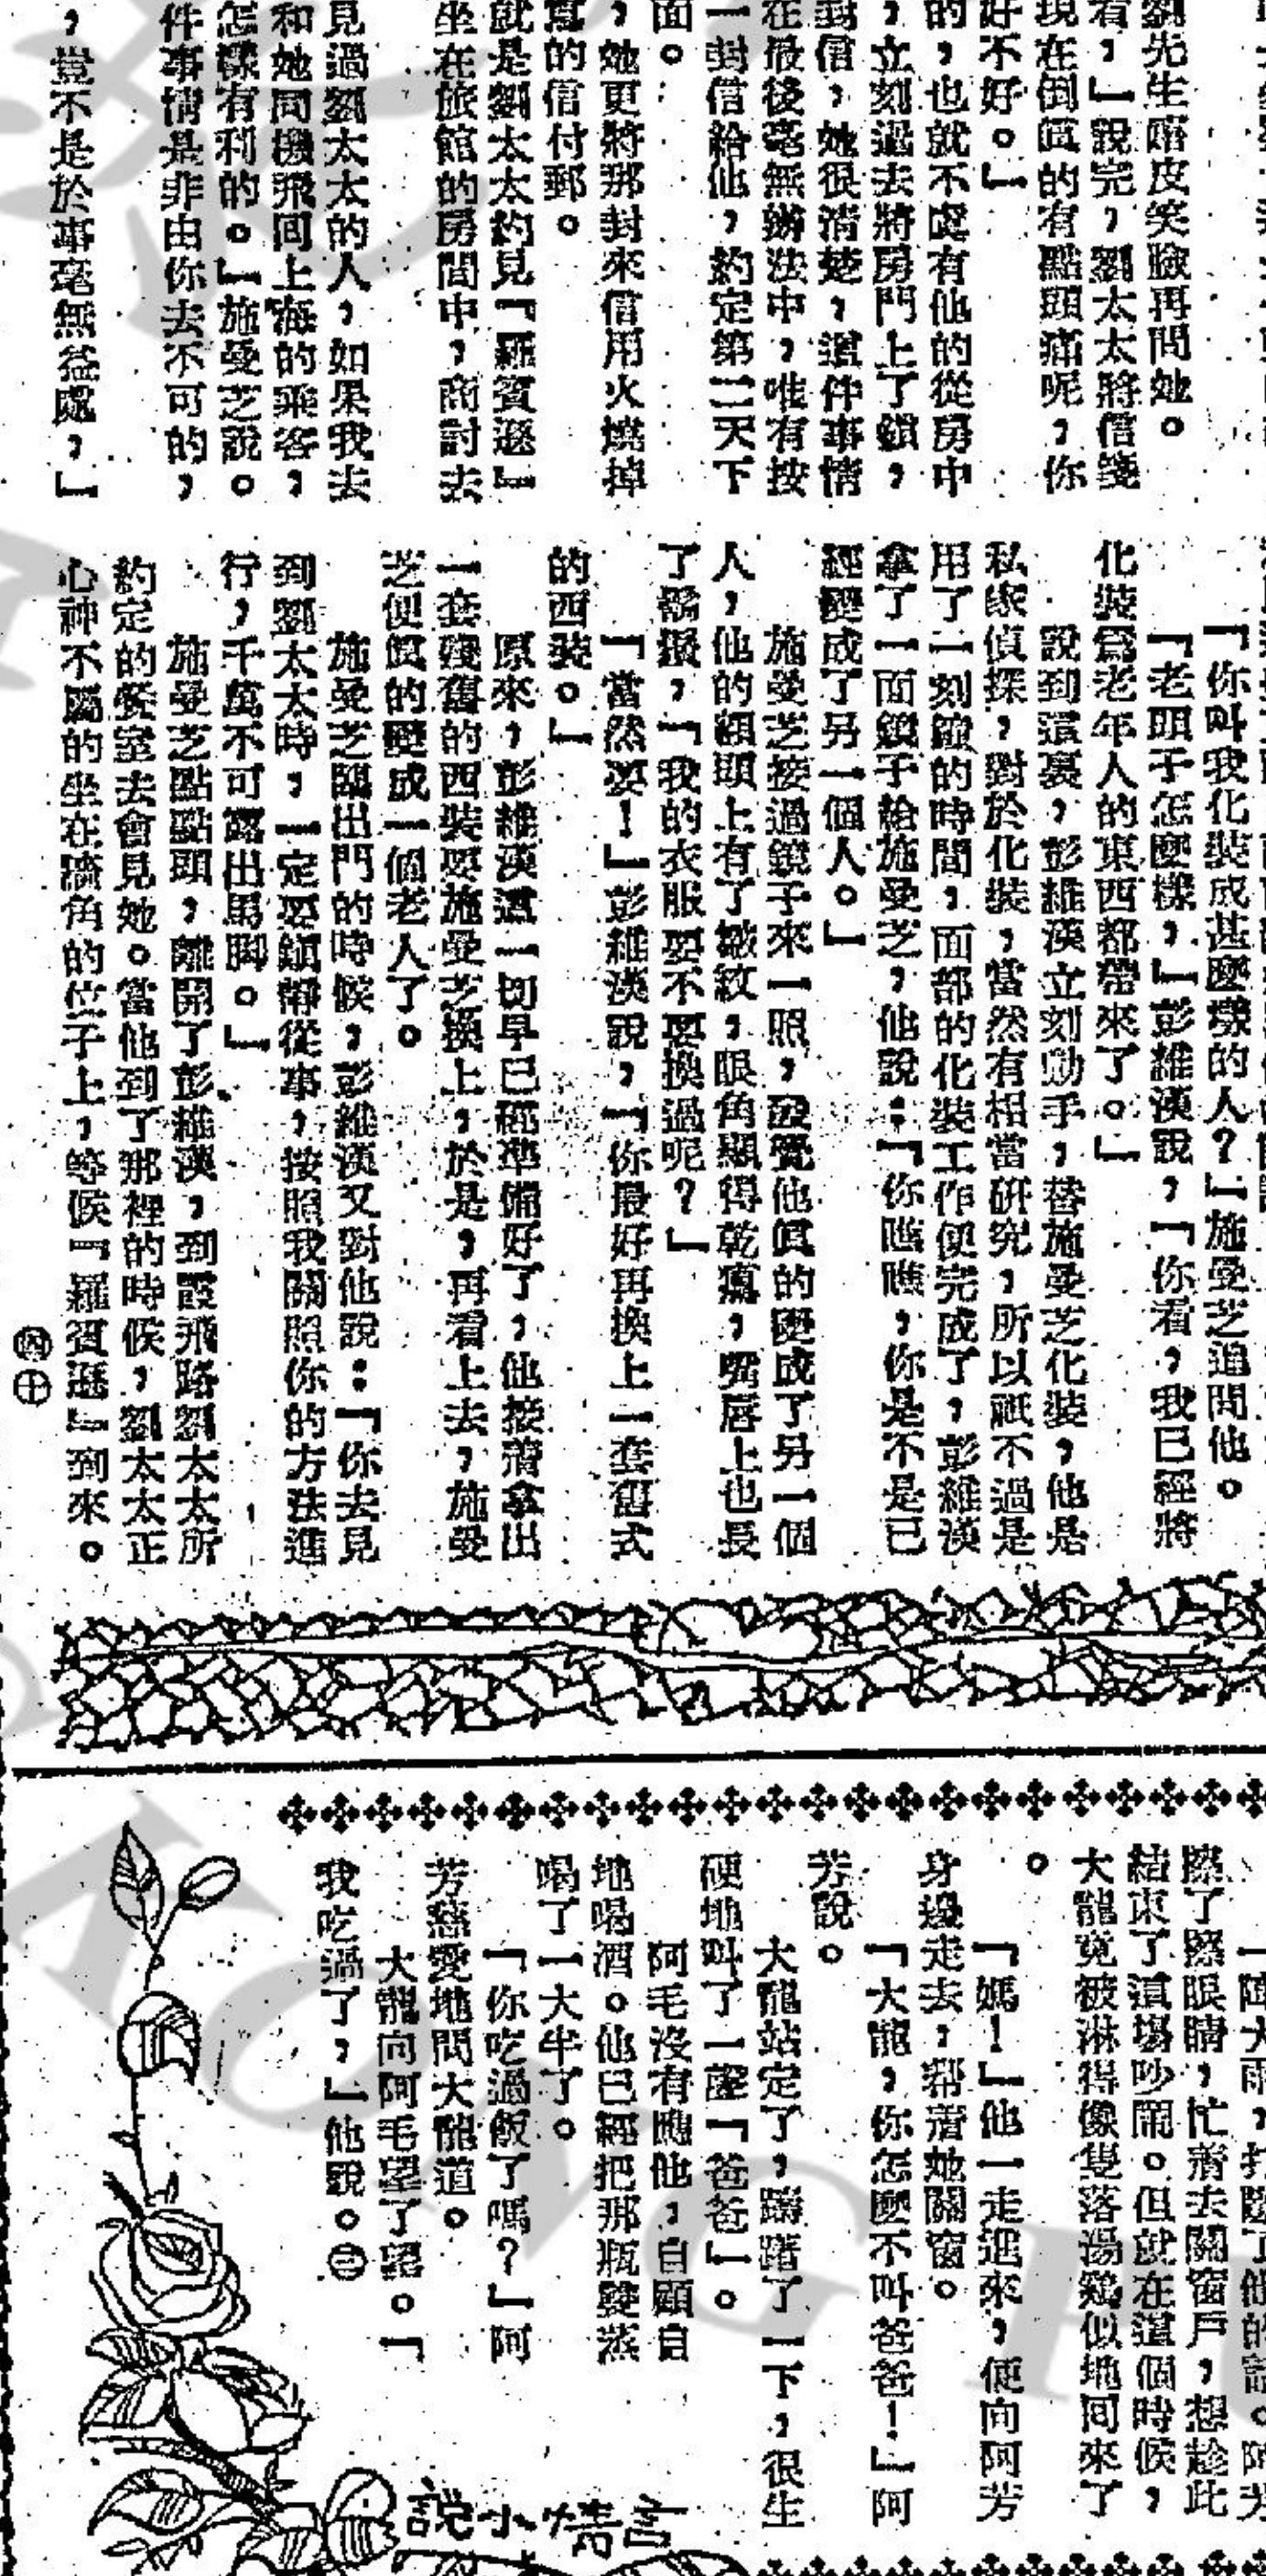 劉先生嘻皮笑臉再問她。
看，」說完，劉太太將信箋
現在倒真的有點頭痛呢，你
好不好。」
的，也就不處有他的從房中
，立刻過去將房門上了鎖，
封信，她很清楚，這件事情
在最後毫無辦法中，唯有按
一封信給他，約定第二天下
面。
，她更將那封來信用火燒掉
寫的信付郵。
就是劉太太約見『羅賓遜』
坐在旅館的房間中，商討去
見過劉太太的人，如果我去
和她同機飛回上海的乘客，
怎樣有利的。」施曼芝說。
件事情是非由你去不可的，
，豈不是於事毫無益處，」
「你叫我化裝成甚麼樣的人？」施曼芝追問他。
「老頭子怎麼樣，」彭維漢說，「你看，我已經將
化裝為老年人的東西都帶來了。」
說到這裏，彭維漢立刻動手，替施曼芝化裝，他是
私家偵探，對於化裝，當然有相當研究，所以祇不過是
用了一刻鐘的時間，面部的化裝工作便完成了，彭維漢
拿了一面鏡子給施曼芝，他說：「你瞧瞧，你是不是已
經變成了另一個人。」
施曼芝接過鏡子來一照，發覺他真的變成了另一個
人，他的額頭上有了皺紋，眼角顯得乾癟，嘴唇上也長
了鬍鬚，「我的衣服要不要換過呢？」
「當然要！」彭維漢說，「你最好再換上一套舊式
的西裝。」
原來，彭維漢這一切早已經準備好了，他接着拿出
一套殘舊的西裝要施曼芝換上，於是，再看上去，施曼
芝便真的變成一個老人了。
施曼芝臨出門的時候，彭維漢又對他說：「你去見
到劉太太時，一定要鎮靜從事，按照我關照你的方法進
行，千萬不可露出馬脚。」
施曼芝點點頭，離開了彭維漢，到霞飛路劉太太所
約定的餐室去會見她。當他到了那裡的時候，劉太太正
心神不屬的坐在牆角的位子上，等候『羅賓遜』到來。
㊃㊉
擦了擦眼睛，忙着去關窗戶，想趁此
結束了這場吵鬧。但就在這個時候，
大龍竟被淋得像隻落湯鷄似地回來了
。
「媽！」他一走進來，便向阿芳
身邊走去，帮着她關窗。
「大龍，你怎麼不叫爸爸！」阿
芳說。
大龍站定了，躊躇了一下，很生
硬地叫了一聲「爸爸」。
阿毛沒有應他，自顧自
地喝酒。他已經把那瓶雙蒸
喝了一大半了。
「你吃過飯了嗎？」阿
芳慈愛地問大龍道。
大龍向阿毛望了望。「
我吃過了，」他說。㊂
言情小說